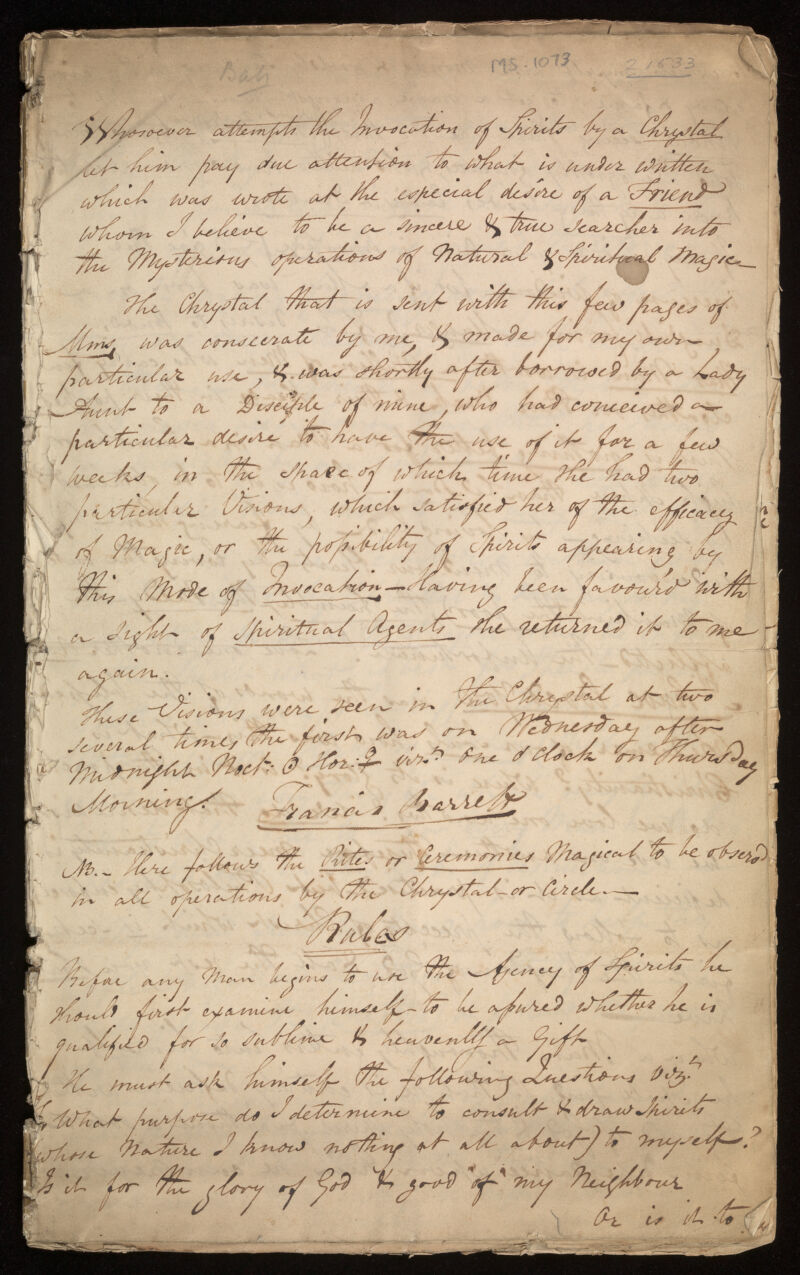 Bati
MS. 1073
21633
Whosoever attempts the Invocation of Spirits by a Chrystal
let him pay due attention to what is under written
which was wrote at the especial desire of a Friend
whom I believe to be a sincere & true searcher into
the Mysterious operations of Natural & Spiritual Magic
The Chrystal that is sent with this few pages of
Mms, was consecrate by me, & made for my own
particular use, & was shortly after borrowed by a Lady
Aunt to a Disciple of mine, who had conceived a
particular desire to have the use of it for a few
weeks, in the space of which time she had two
particular Visions, which satisfied her of the efficacy
of Magic, or the possibility of Spirits appearing by
this Mode of Invocation – Having been favour'd with
a sight of Spiritual Agents she returned it to me
again.
These Visions were seen in the Chrystal at two
several times, the first was on Wednesday after
Midnight Noct. ☿ Hor: ♀ vizt. One o'Clock on Thursday
Morning.
Francis Barrett
NB. – Here follows the Rites or Ceremonies Magical to be observd
in all operations by the Chrystal – or Circle. –
Rules
Before any Man begins to use the Agency of Spirits he
should first examine himself – to be assured whether he is
qualified for so sublime & heavenly a Gift
He must ask himself the following Questions vizt.
What purpose do I determine to consult & draw Spirits
whose Nature I know nothing at all about) to myself?
Is it for the glory of God & good "of" my Neighbour
Or is it to